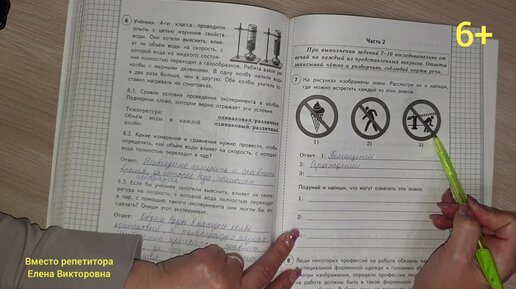 6 Ученики 4-го класса проводили
опыты с целью изучения свойств
воды. Они хотели выяснить, влия-
ет ли объём воды на скорость, с
которой вода из жидкого состоя-
ния полностью переходит в газообразное. Ребята взяли две
колбы с мерными делениями. В одну колбу налили воды
в два раза больше, чем в другую. Обе колбы учитель по-
ставил нагревать на спиртовках.
6.1. Сравни условия проведения эксперимента в колбах.
Подчеркни слово, которое верно отражает эти условия.
Температура: одинаковая/различная
Объём воды в каждой одинаковый/различный
колбе:
6.2. Какие измерения и сравнения нужно провести, чтобы
определить, как объём воды влияет на скорость, с которой
вода полностью переходит в пар?
Ответ: Необходимо измерить и сравнить
время, за которое вода
6.3. Если бы ученики захотели выяснить, влияет ли темпе-
ратура на скорость, с которой вода полностью переходит
в пар, с помощью какого эксперимента они могли бы это
сделать? Опиши этот эксперимент.
Ответ: Объём воды в каждой колбе
Часть 2
При выполнении заданий 7–10 последовательно от-
вечай на каждый из представленных вопросов. Ответы
записывай чётко и разборчиво, соблюдай нормы речи.
7 На рисунках изображены знаки. Рассмотри их и напиши,
где можно встретить каждый из этих знаков.
1) 2) 3)
Ответ. 1. Помещение
2.
3.
Подумай и напиши, что могут означать эти знаки.
1.
2.
3.
8 Люди некоторых профессий на работе обязаны на
специальной форменной одежде и головных у
мотри изображения, определи профессию лю
на работе должны быть в такой форменн
6+
Вместо репетитора
Елена Викторовна